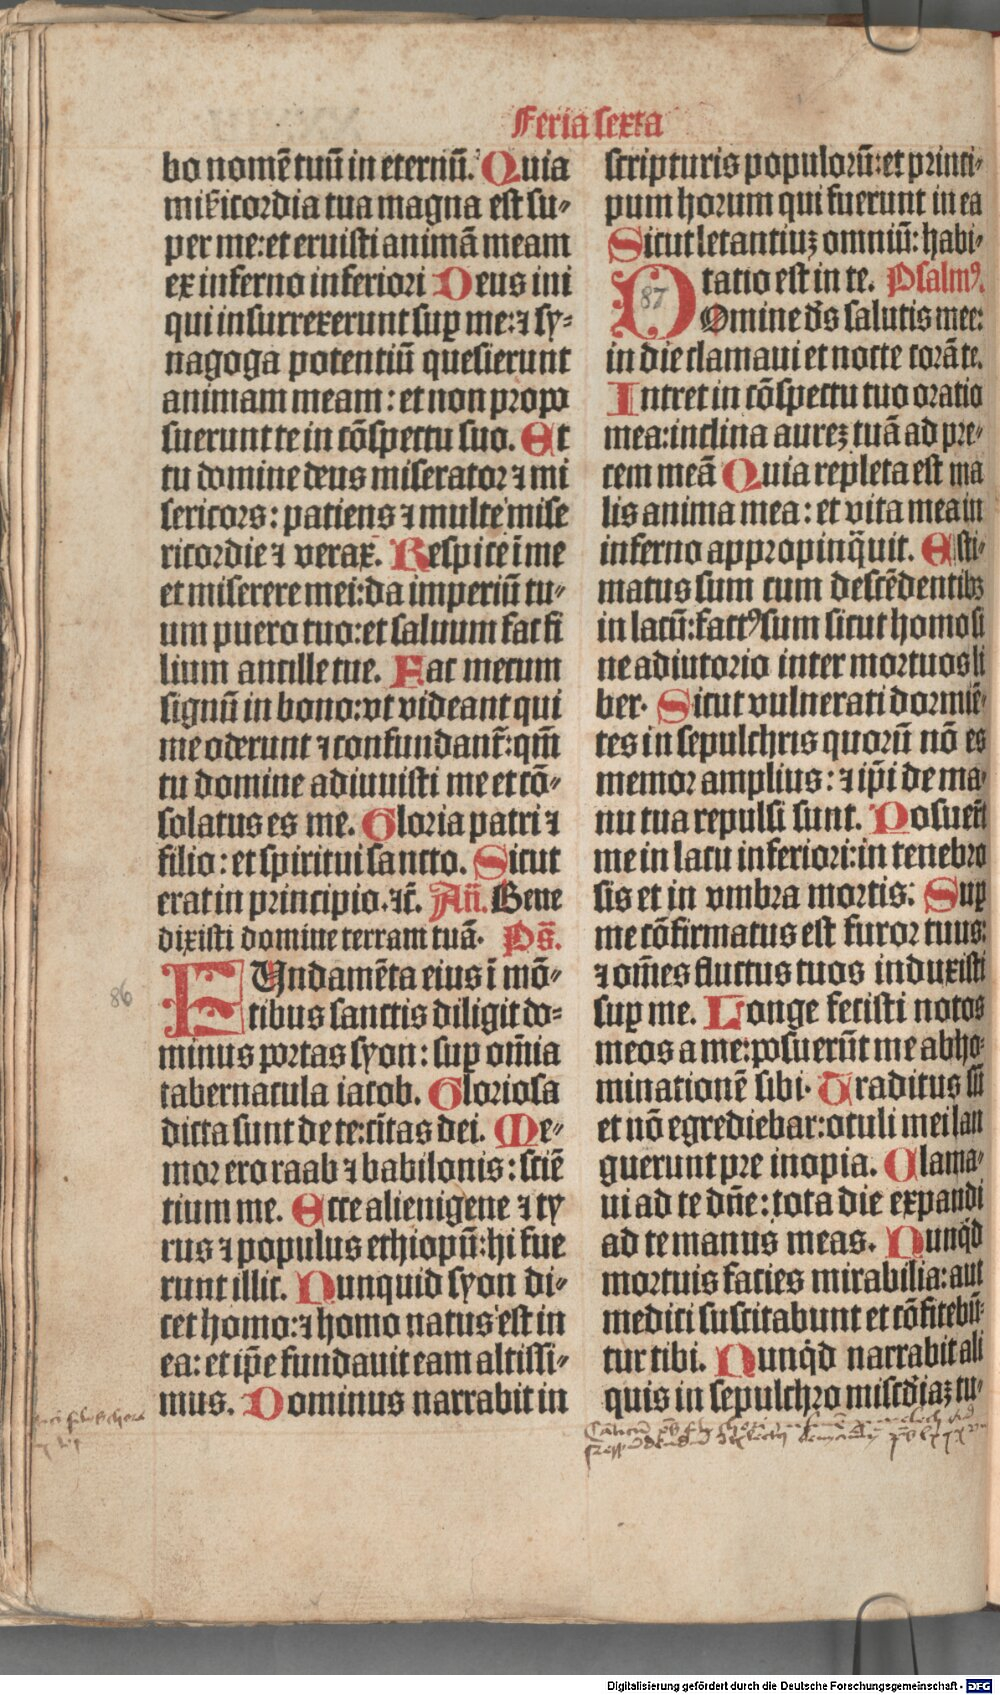 Feria sexta
bo nomē tuū in eternū. Quia
mĩcordia tua magna est su-
per me: et eruisti animā meam
ex inferno inferiori Deus ini
qui insurrexerunt suꝑ me: ⁊ sy-
nagoga potentiū quesierunt
animam meam: et non propo
suerunt te in cōspectu suo. Et
tu domine deus miserator ⁊ mi
sericors: patiens ⁊ multe mise
ricordie ⁊ verax. Respice ī me
et miserere mei: da imperiū tu-
um puero tuo: et saluum fac fi
lium ancille tue. Fac mecum
signū in bono: vt videant qui
me oderunt ⁊ confundant̄: qm̄
tu domine adiuuisti me et cō-
solatus es me. Gloria patri ⁊
filio: et spiritui sancto. Sicut
erat in principio. ⁊c̄. Añ. Bene
dixisti domine terram tuā. Ps̄.
86
FUndamēta eius ī mō-
tibus sanctis diligit do-
minus portas syon: suꝑ om̄ia
tabernacula iacob. Gloriosa
dicta sunt de te: ciītas dei. Me-
mor ero raab ⁊ babilonis: sciē
tium me. Ecce alienigene ⁊ ty
rus ⁊ populus ethiopū: hi fue
runt illic. Nunquid syon di-
cet homo: ⁊ homo natus est in
ea: et ip̄e fundauit eam altissi-
mus. Dominus narrabit in
scripturis populorū: et princi-
pum horum qui fuerunt in ea
Sicut letantiuꝫ omniū: habi-
tatio est in te. Psalmꝰ.
87
DOmine ds̄ salutis mee:
in die clamaui et nocte corā te.
Intret in cōspectu tuo oratio
mea: inclina aureꝫ tuā ad pre-
cem meā Quia repleta est ma
lis anima mea: et vita mea in
inferno appropinq̄uit. Esti-
matus sum cum descēdentibꝫ
in lacū: factꝰ sum sicut homo si
ne adiutorio inter mortuos li
ber. Sicut vulnerati dormiē-
tes in sepulchris quorū nō es
memor amplius: ⁊ ip̄i de ma-
nu tua repulsi sunt. Posuer̄t
me in lacu inferiori: in tenebro
sis et in vmbra mortis: Suꝑ
me cōfirmatus est furor tuus:
⁊ om̄es fluctus tuos induxisti
suꝑ me. Longe fecisti notos
meos a me: posuerūt me abho-
minationē sibi. Traditus sū
et nō egrediebar: oculi mei lan
guerunt pre inopia. Clama-
ui ad te dn̄e: tota die expandi
ad te manus meas. Nunqͥd
mortuis facies mirabilia: aut
medici suscitabunt et cōfitebū-
tur tibi. Nunqͥd narrabit ali
quis in sepulchro mis̄cdiaꝫ tu-
Digitalisierung gefördert durch die Deutsche Forschungsgemeinschaft - DFG